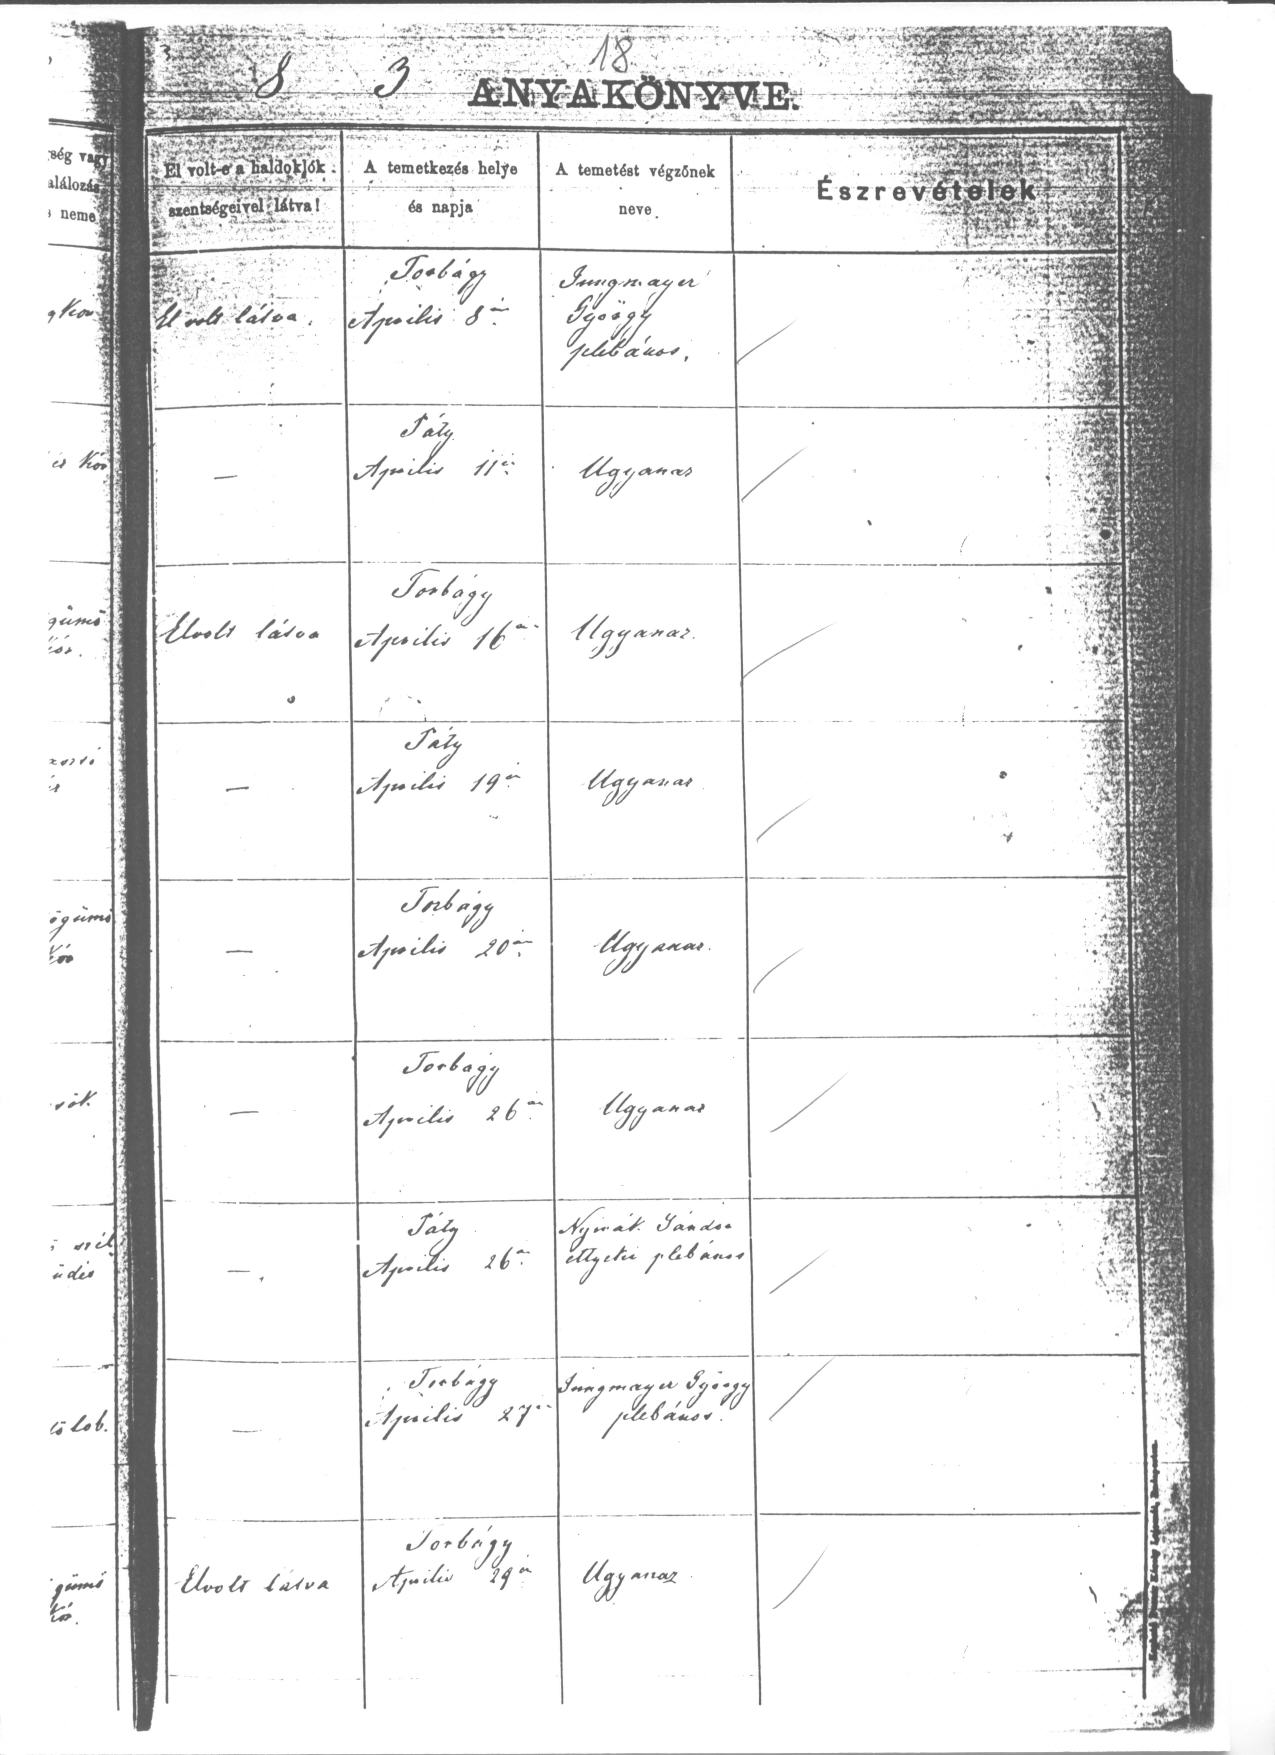 18
8 3 ANYAKÖNYVE.
ség vagy
alálozás
neme
El volt-e a haldoklók
szentségeivel látva!
A temetkezés helye
és napja
A temetést végzőnek
neve
Észrevételek
El volt látva.
Torbágy
Április 8án
Jungmayer
György
plebános.
Kór
—
Páty
Április 11én
Ugyanaz
gümő
kór.
Elvolt látva
Torbágy
Április 16án
Ugyanaz.
—
Páty
Április 19én
Ugyanaz
gümő
kór
—
Torbágy
Április 20án
Ugyanaz.
—
Torbágy
Április 26án
Ugyanaz
szél
üdés
—
Páty
Április 26án
Nyirák Sándor
etyeki plebános
lob.
—
Torbágy
Április 27én
Jungmayer György
plebános.
gümő
kór.
Elvolt látva
Torbágy
Április 29én
Ugyanaz